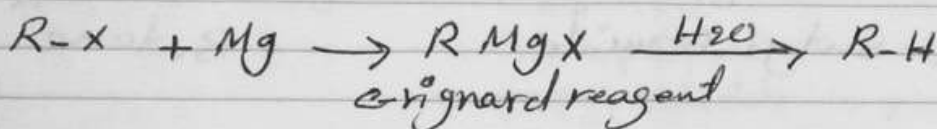 R-X + Mg → R MgX H2O→ R-H
Grignard reagent